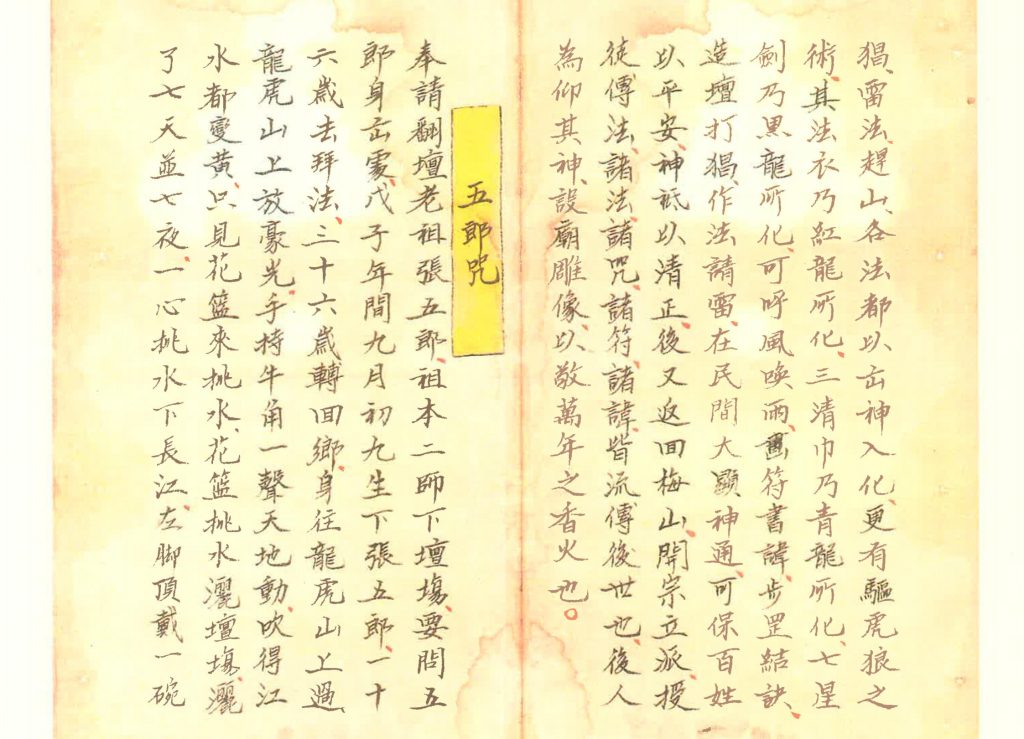 猖、雷法、趕山、各法都以岀神入化、更有驅虎狼之
術、其法衣乃紅龍所化、三清巾乃青龍所化、七星
劍乃黑龍所化、可呼風喚雨、畫符書諱、步罡結訣、
造壇打猖、作法請雷、在民間大顯神通、可保百姓
以平安、神祗以清正後又返回梅山、開宗立派授
徒傳法、諸法、諸咒、諸符、諸諱、皆流傳後世也、後人
為仰其神、設廟雕像、以敬萬年之香火也。
五郎咒
奉請翻壇老祖張五郎、祖本二師下壇塲、要問五
郎身岀處、戊子年間九月初九生下張五郎、一十
六歲去拜法、三十六歲轉回鄉、身往龍虎山上過、
龍虎山上放豪光、手持牛角一聲天地動、吹得江
水都變黃、只見花籃來挑水、花籃挑水灑壇塲、灑
了七天並七夜、一心挑水下長江、左脚頂戴一碗